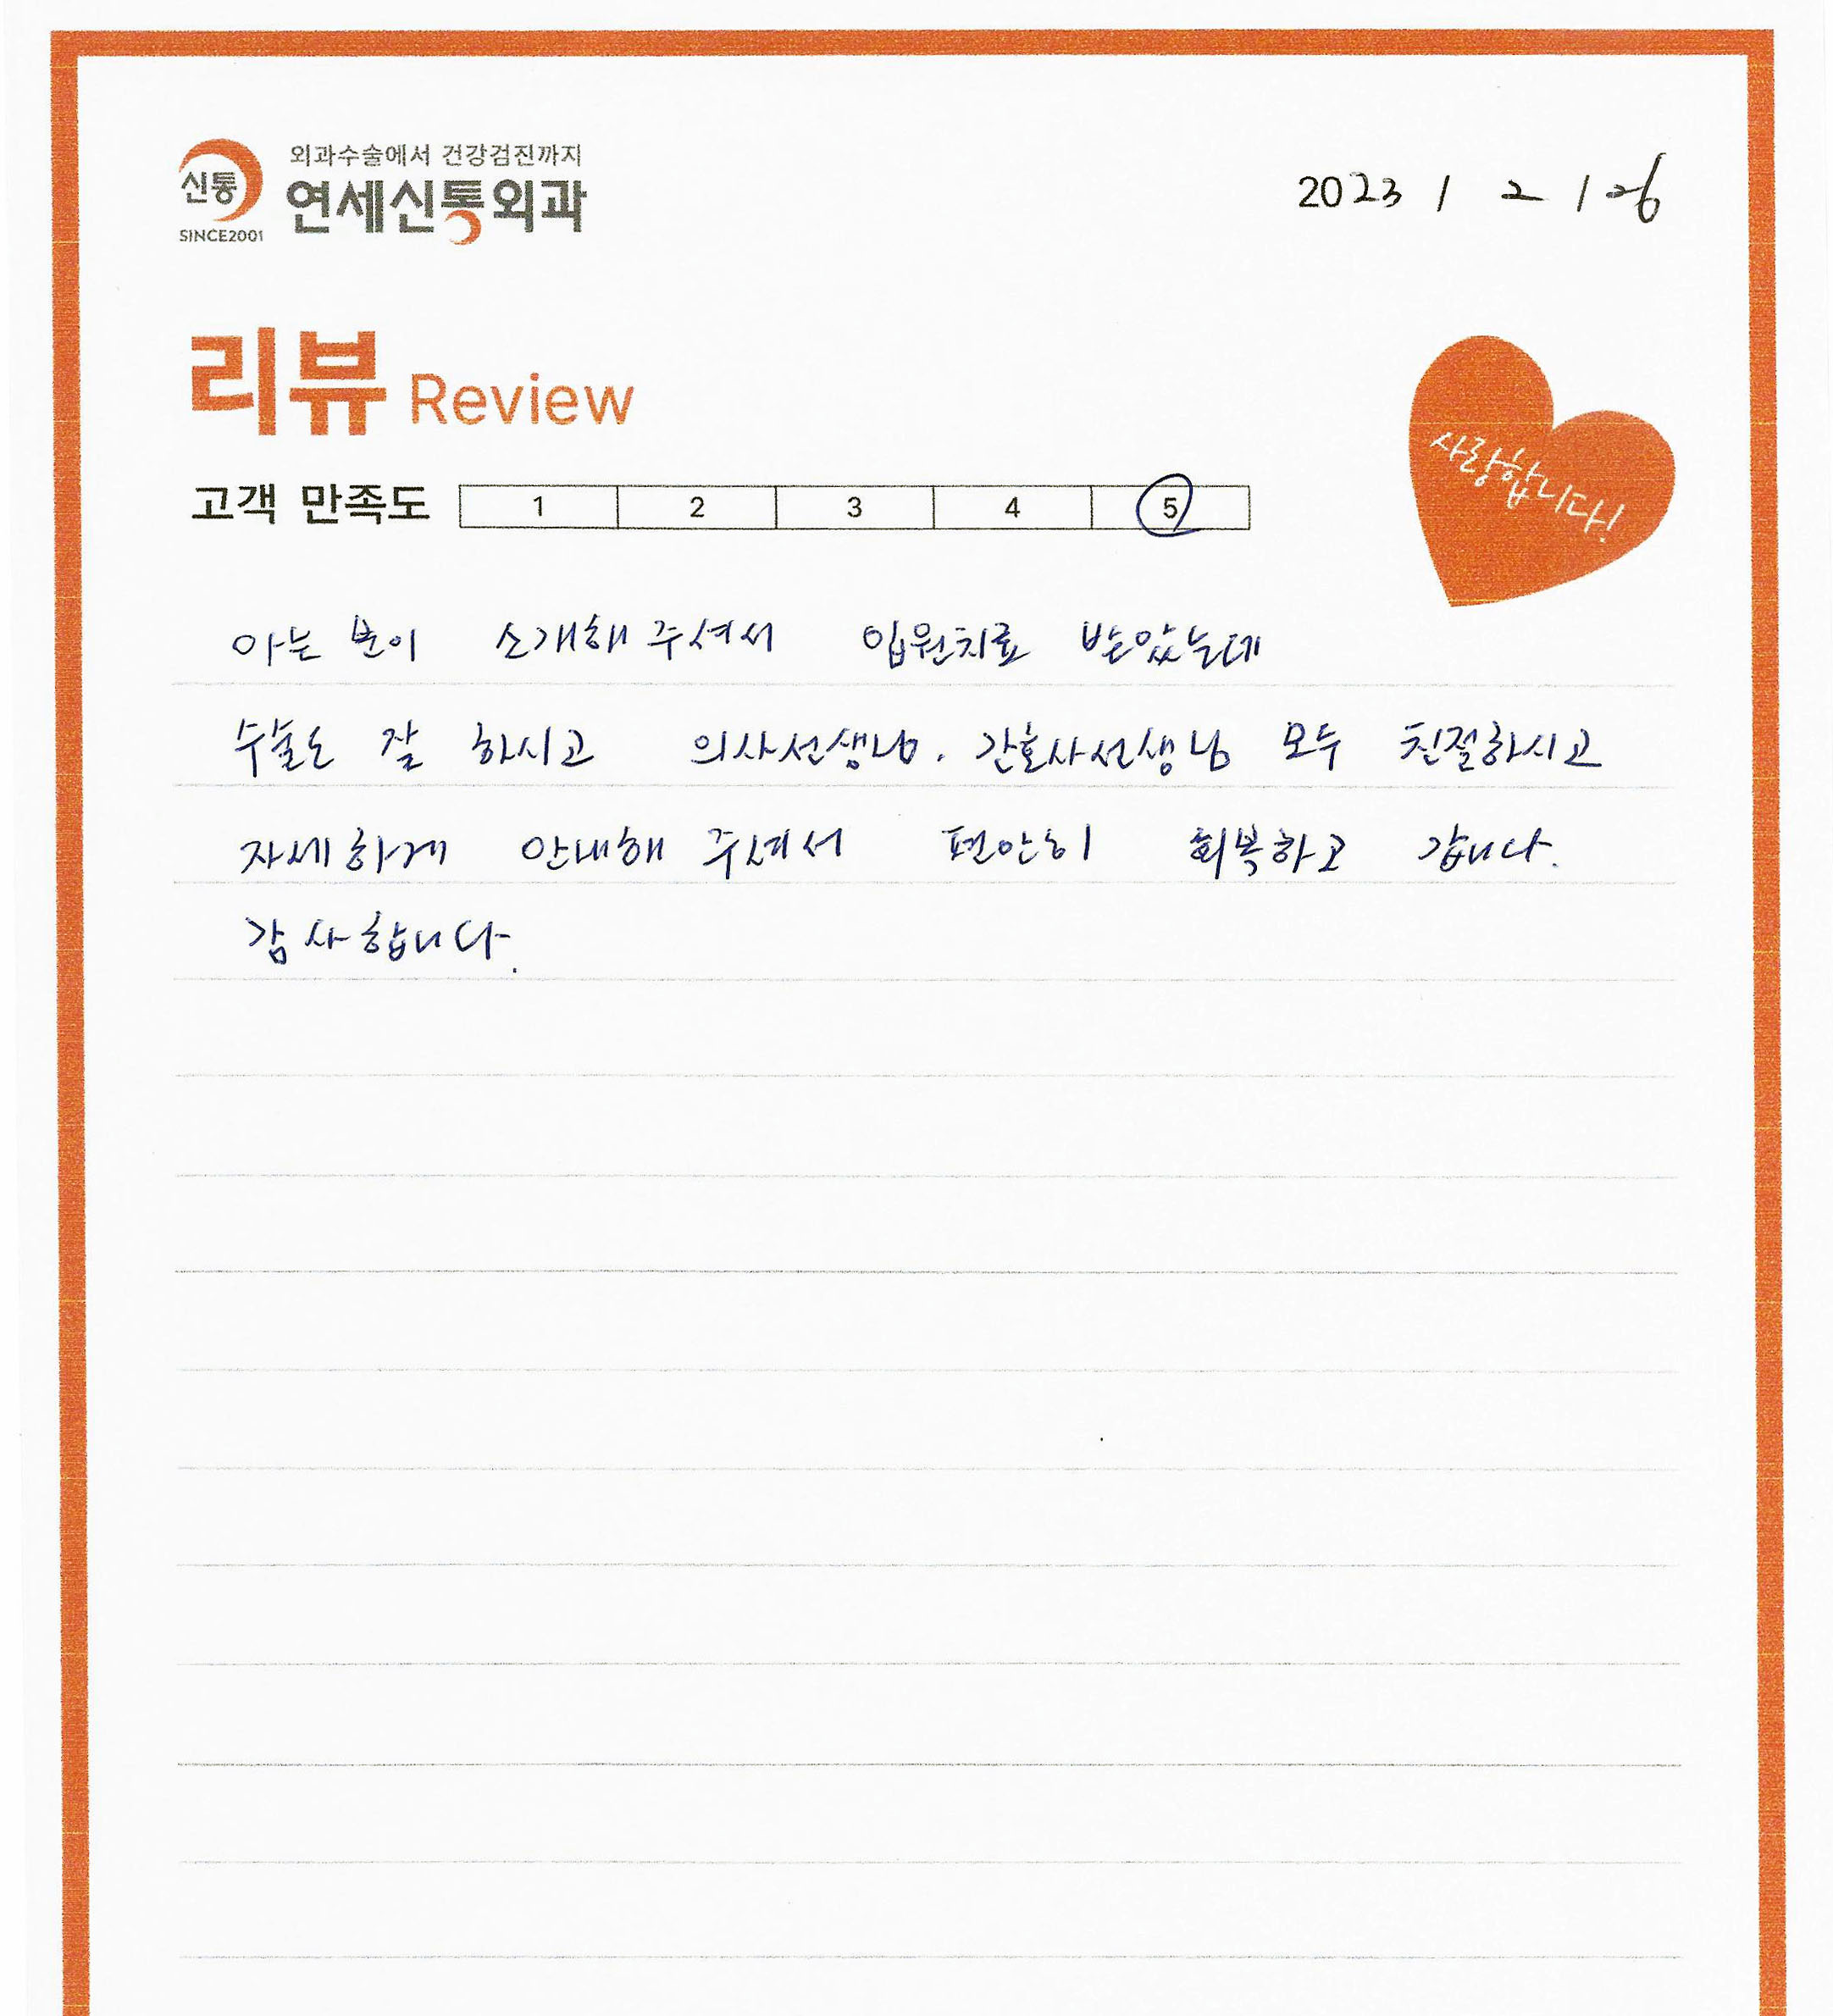 신통
SINCE2001
외과수술에서 건강검진까지
연세신통외과
2023 / 2 / 26
리뷰 Review
사랑합니다!
고객 만족도 1 2 3 4 5
아는 분이 소개해 주셔서 입원치료 받았는데
수술도 잘 하시고 의사선생님. 간호사선생님 모두 친절하시고
자세하게 안내해 주셔서 편안히 회복하고 갑니다.
감사합니다.